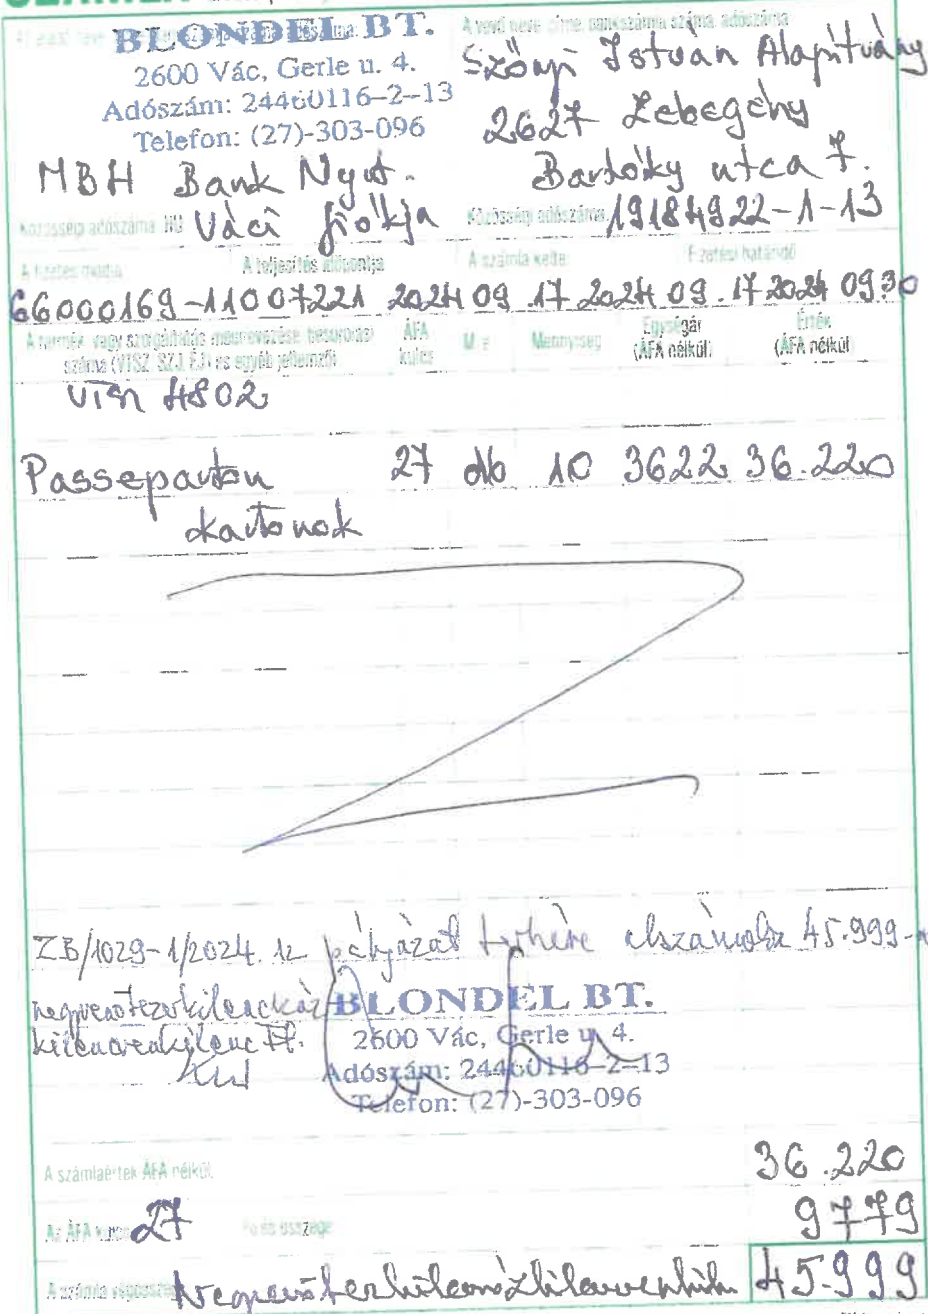 BLONDEL BT.
2600 Vác, Gerle u. 4.
Adószám: 24460116-2-13
Telefon: (27)-303-096
MBH Bank Nyrt.
Váci fiókja
A vevő neve, címe, bankszámla száma, adószáma
Szőnyi István Alapítvány
2627 Zebegény
Bartóky utca 7.
Közösségi adószáma: HU
Közösségi adószáma: 19184922-1-13
A fizetés módja
A teljesítés időpontja
A számla kelte:
Fizetési határidő
66000169-11007221 2024 09 .17 2024 09 .17 2024 09 30
A termék vagy szolgáltatás megnevezése, besorolási
száma (VTSZ, SZJ, ÉJ) és egyéb jellemzői
ÁFA
kulcs
M.e.
Mennyiség
Egységár
(ÁFA nélkül)
Érték
(ÁFA nélkül
VTSZ 4802
Passepartou 27 db 10 3622 36.220
kartonok
ZB/1029-1/2024. pályázat terhére elszámolva 45.999-
negyvenötezerkilencszáz
kilencvenkilenc Ft.
BLONDEL BT.
2600 Vác, Gerle u. 4.
Adószám: 24460116-2-13
Telefon: (27)-303-096
A számlaérték ÁFA nélkül:
36.220
Az ÁFA kulcs 27 %-os összege
9779
A számla végösszege
45.999